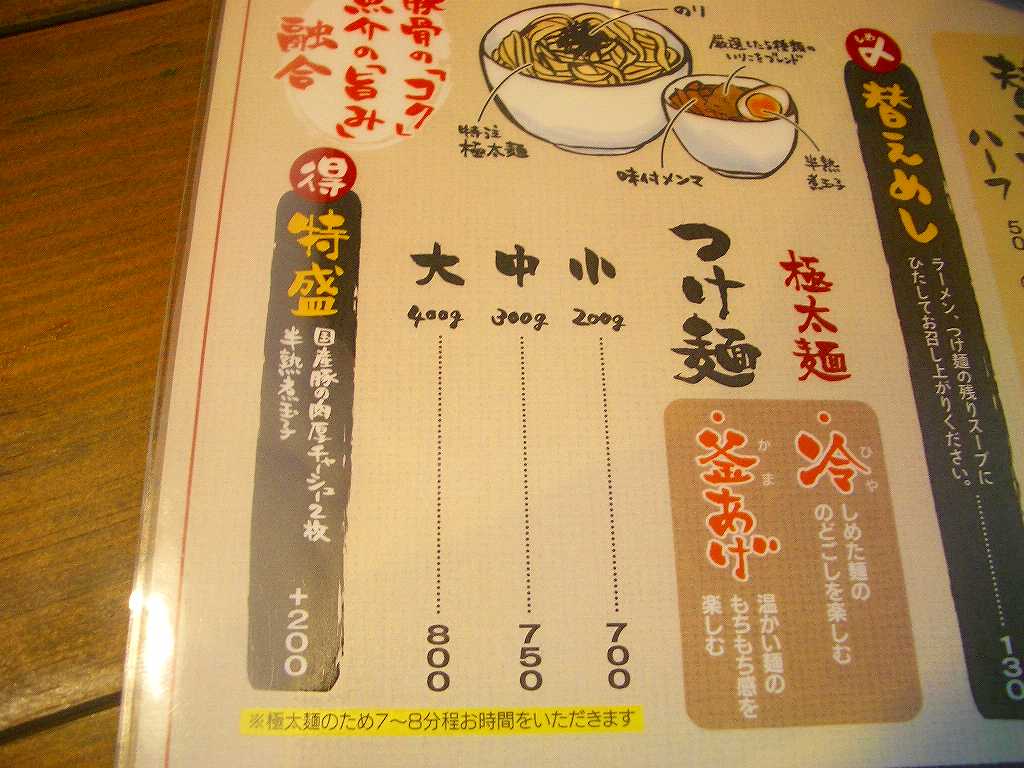 替
ハーフ
50
〆
しめ
替えめし
ラーメン、つけ麺の残りスープに
ひたしてお召し上がりください。
130
のり
厳選した5種類の
いりこをブレンド
特注
極太麺
味付メンマ
半熟
煮玉子
豚骨の「コク」
魚介の「旨み」
融合
極太麺
つけ麺
冷
ひや
しめた麺の
のどごしを楽しむ
釜あげ
かま
温かい麺の
もちもち感を
楽しむ
小 200g 700
中 300g 750
大 400g 800
得
特盛
国産豚の肉厚チャーシュー2枚
半熟煮玉子
+200
※極太麺のため7〜8分程お時間をいただきます